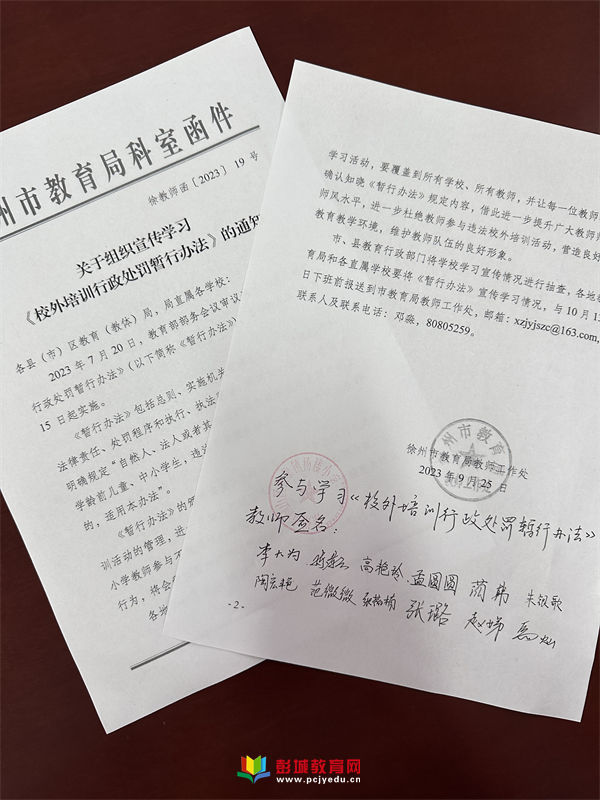 州市教育局科室函件
徐教师函〔2023〕19号
关于组织宣传学习
《校外培训行政处罚暂行办法》的通知
各县（市）区教育（教体）局，局直属各学校：
2023年7月20日，教育部部务会议审议
行政处罚暂行办法》（以下简称《暂行办法》）
15日起实施。
《暂行办法》包括总则、实施机关
法律责任、处罚程序和执行、执法
明确规定“自然人、法人或者其
学龄前儿童、中小学生，违法
的，适用本办法”。
《暂行办法》的
训活动的管理，进
小学教师参与不
行为，将会
各地
学习活动，要覆盖到所有学校、所有教师，并让每一位教师
确认知晓《暂行办法》规定内容，借此进一步提升广大教师师
师风水平，进一步杜绝教师参与违法校外培训活动，营造良好
教育教学环境，维护教师队伍的良好形象。
市、县教育行政部门将学校学习宣传情况进行抽查，各地教
育局和各直属学校要将《暂行办法》宣传学习情况，与10月1
日下班前报送到市教育局教师工作处，邮箱：xzjyjszc@163.com,
联系人及联系电话：邓淼，80805259。
州市教育
徐州市教育局教师工作处
2023年9月25日
参与学习《校外培训行政处罚暂行办法》
教师签名：
高艳玲 孟圆圆 朱银歌
陶宏艳 范微微 张璐 赵娣
-2-
彭城教育网
www.pcjyedu.cn